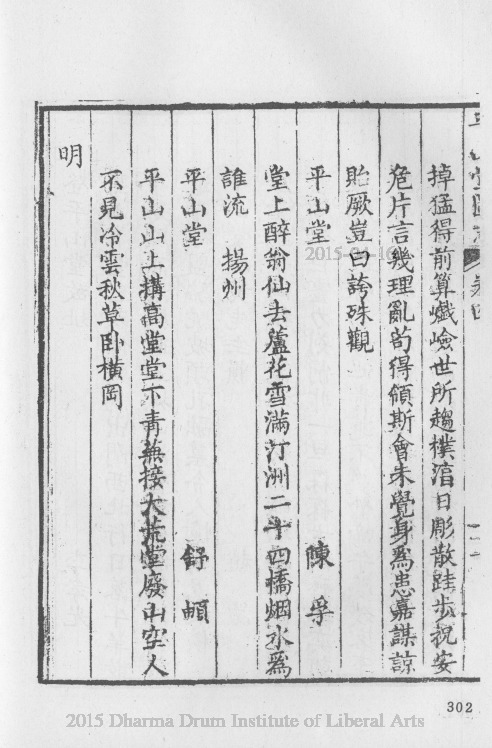 平山堂圖志 卷四
掉猛得前算巇嶮世所趨樸湻日彫散跬步視安
危片言幾理亂茍得領斯會未覺身為患嘉謀諒
貽厥豈曰誇殊觀
平山堂 陳孚
堂上醉翁仙去蘆花雪滿汀洲二十四橋烟水為
誰流 揚州
平山堂 舒頔
平山山上搆高堂堂下青蕪接大荒堂廢山空人
不見冷雲秋草臥橫岡
明
302
2015 Dharma Drum Institute of Liberal Arts